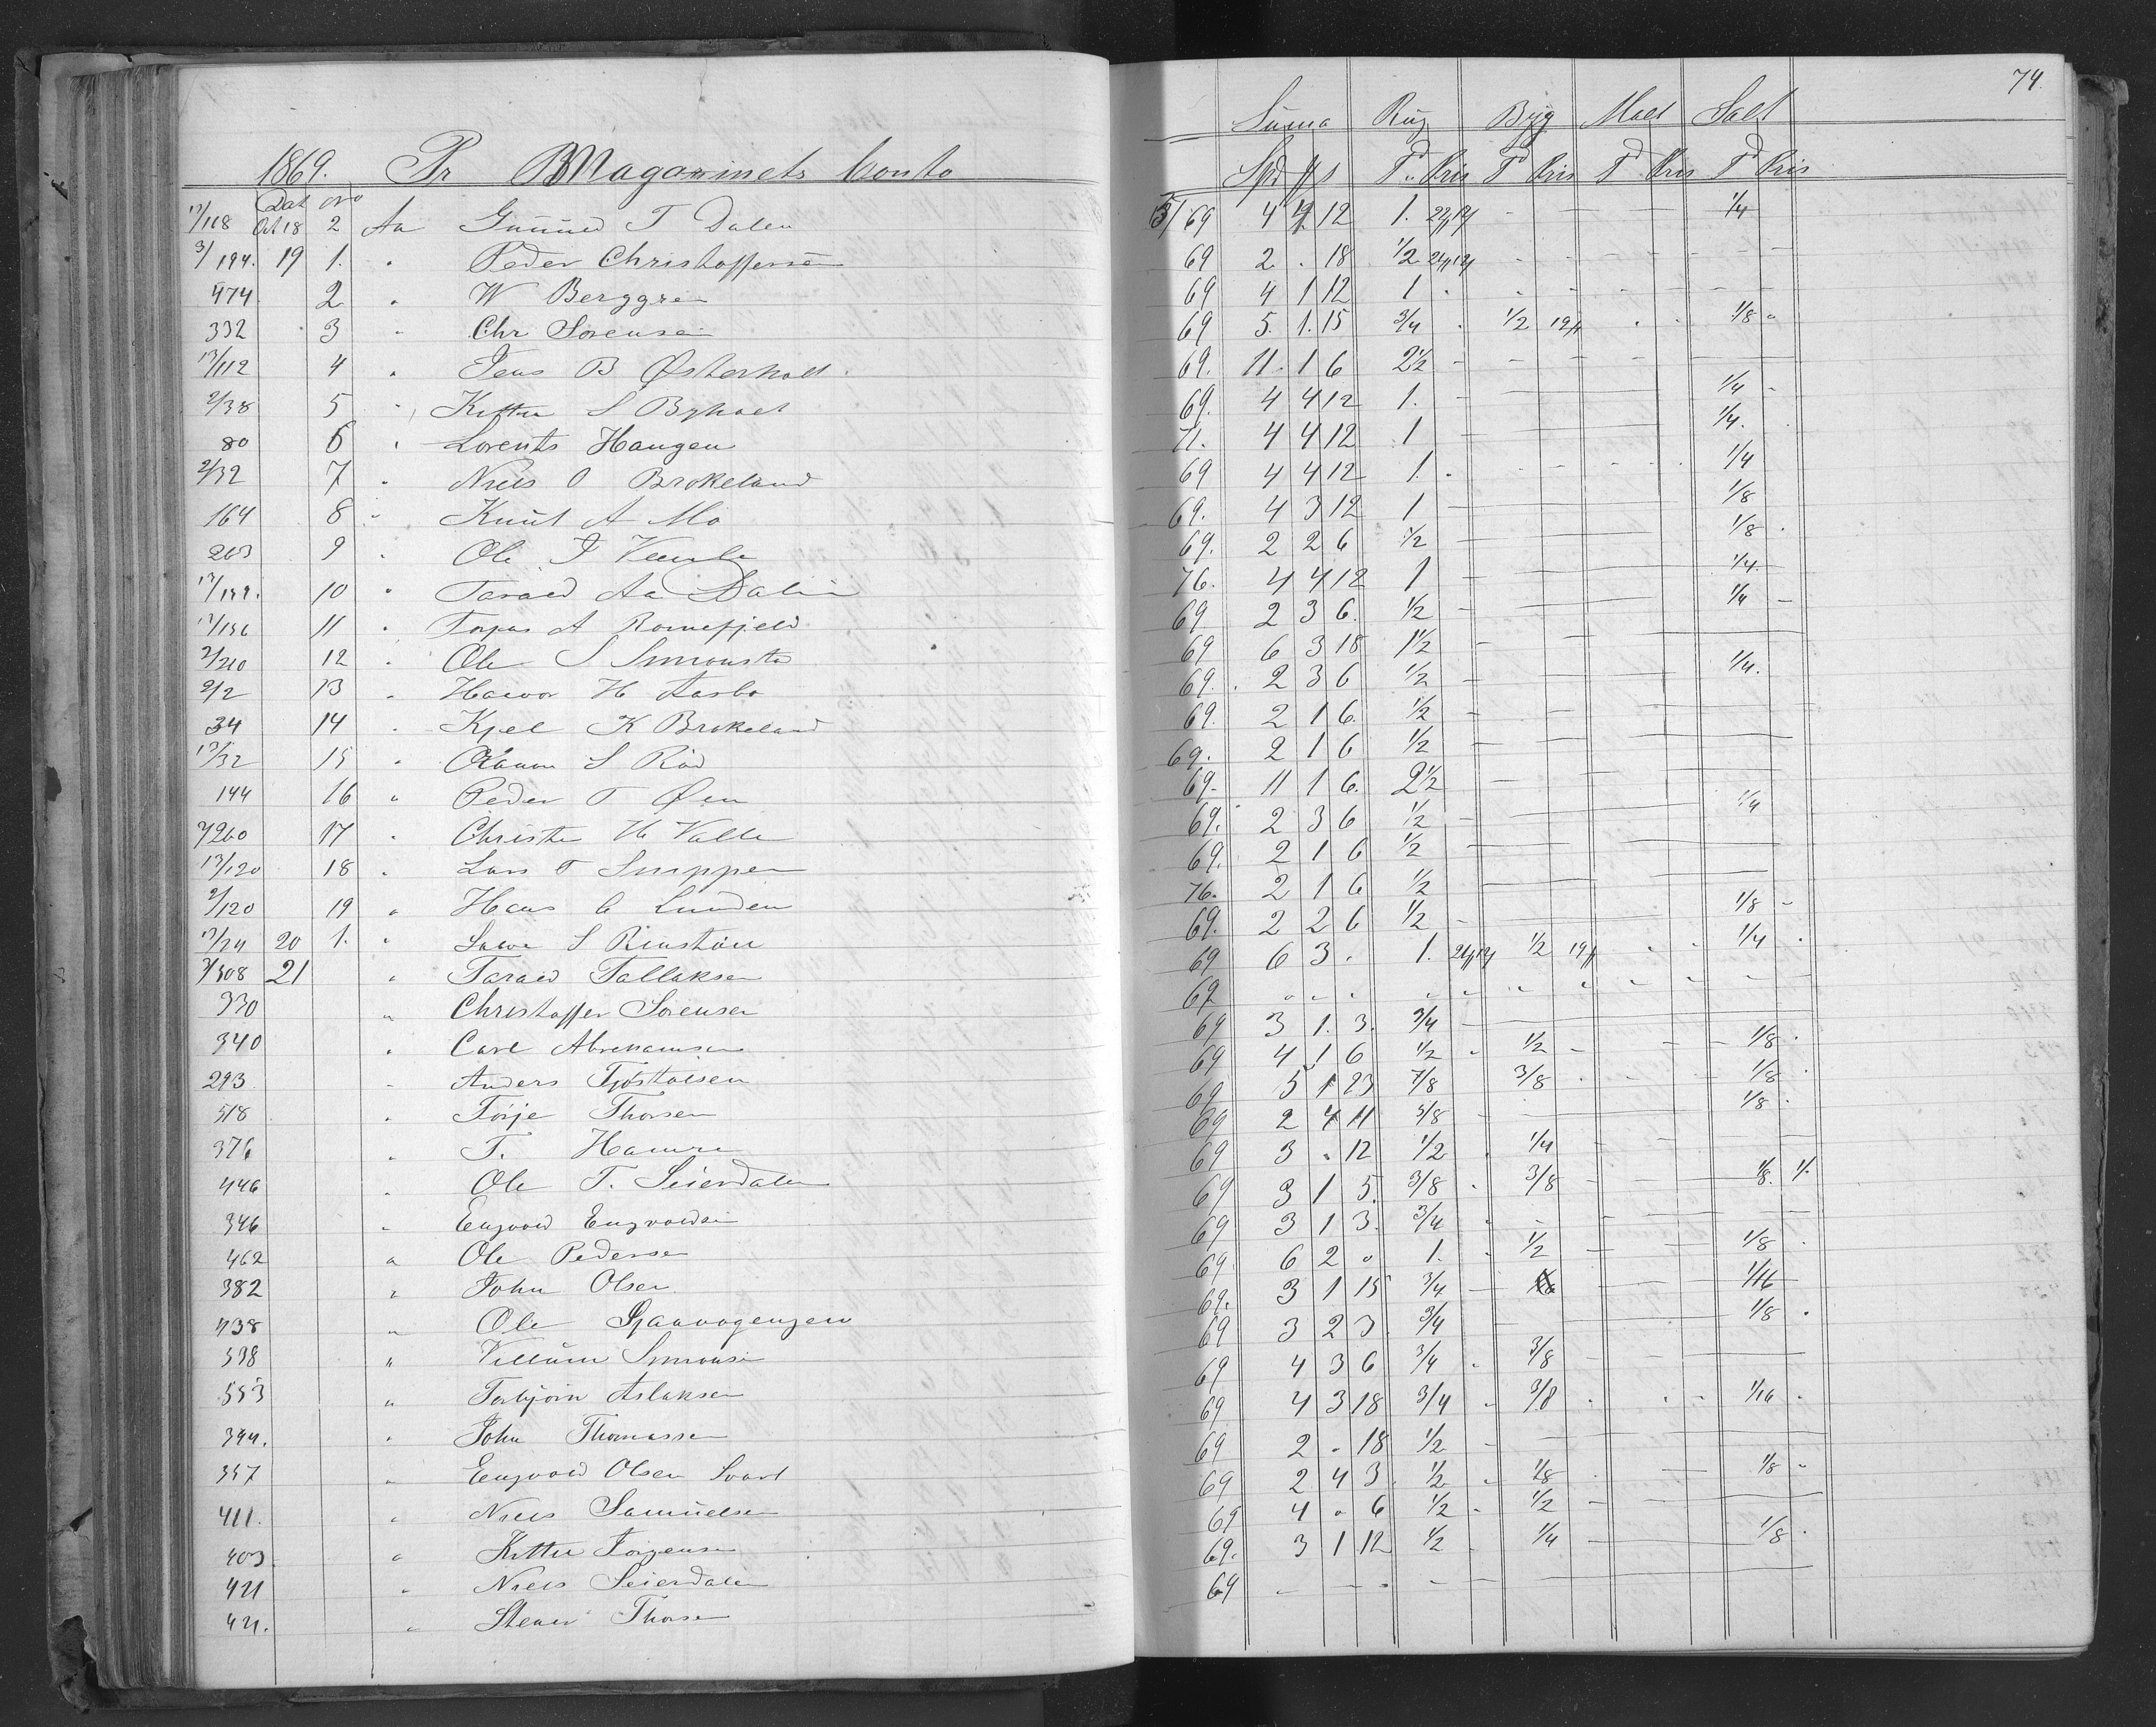 74
1869. Pr Magazinets Conto
Suma Rug Byg Malt Salt
Dat No Spd # s Td Pris Td Pris Td Pris Td Pris
17/118 Oct 18 2 Aa Gunued T Dalen 3/69 4 12 1. 1/4
3/194. 19 1. " Peder Christoffersen 69 2 . 18 1/2
474 2 " W Berggren 69 4 1 12 1
332 3 " Chr Sørensen 69 5. 1. 15 3/4 1/2 1/8
17/112 4 " Jens B Østerholt 69. 11. 1 6 2 1/2
2/38 5 " S Byholt 69. 4 4 12 1. 1/4
80 6 " Lorents Haugen 71. 4 4 12 1 1/4.
2/32 7 " Niels O Brokeland 69 4 4 12 1. 1/4
164 8 " Knut A Mo 69. 4 3 12 1 1/8
203 9 " Ole 69. 2 2 6 1/2 1/8
10 " Tarald Aa Dalen 76. 4 4 12 1 1/4
17/156 11 " A 69 2 3 6. 1/2 1/4
2/210 12 " Ole S Simonstad 69 6 3 18 1 1/2
2/2 13 " H Aasbo 69. 2 3 6 1/2 1/4.
34 14 " Kjel K Brokeland 69. 2 1 6. 1/2
17/32 15 " S Rød 69. 2 1 6 1/2
144 16 " Peder T Øen 69. 11 1 6. 2 1/2
260 17 " Christen H Valle 69. 2 3 6 1/2 1/4
17/120 18 " Lars T 69. 2 1 6 1/2
2/120 19 " Hans C Lunden 76. 2 1 6 1/2
17/24 20 1. " S 69. 2 2 6 1/2 1/8
3/308 21 " Tarald Tallaksen 69 6 3 . 1. 1/2 1/4
330 " Christoffer Sørensen 69 " " " "
340 " Carl Abrahamsen 69 3 1. 3. 3/4
293 " Anders Tjøstolsen 69 4 1 6 1/2 1/2 1/8
518 " Tørje Thorsen 69 5 1 23 7/8 3/8 1/8
376 " T. Hamre 69 2 4 11 5/8 1/8
446 " Ole T. Seierdalen 69 3 . 12 1/2 1/4
346 " Engvold Engvoldsen 69 3 1 5. 3/8 3/8 1/8.
462 " Ole Pedersen 69 3 1 3. 3/4
382 " John Olsen 69. 6 2 " 1. 1/2 1/8
438 " Ole 69. 3 1 15 3/4 1/16
398 " Villum Simonsen 69 3 2 3 3/4 1/8
553 " Torbjørn Aslaksen 69 4 3 6 3/4 3/8
394. " John Thomassen 69 4 3 18 3/4 3/8 1/16
357 " Engvold Olsen Svart 69 2 " 18 1/2
411. " Niels Samuelsen 69 2 4 3 1/2 1/8 1/8
403 " Kittel Jørgensen 69 4 " 6 1/2 1/2
421 " Niels Seierdalen 69. 3 1 12 1/2 1/4 1/8
421. " Stener Thorsen 69